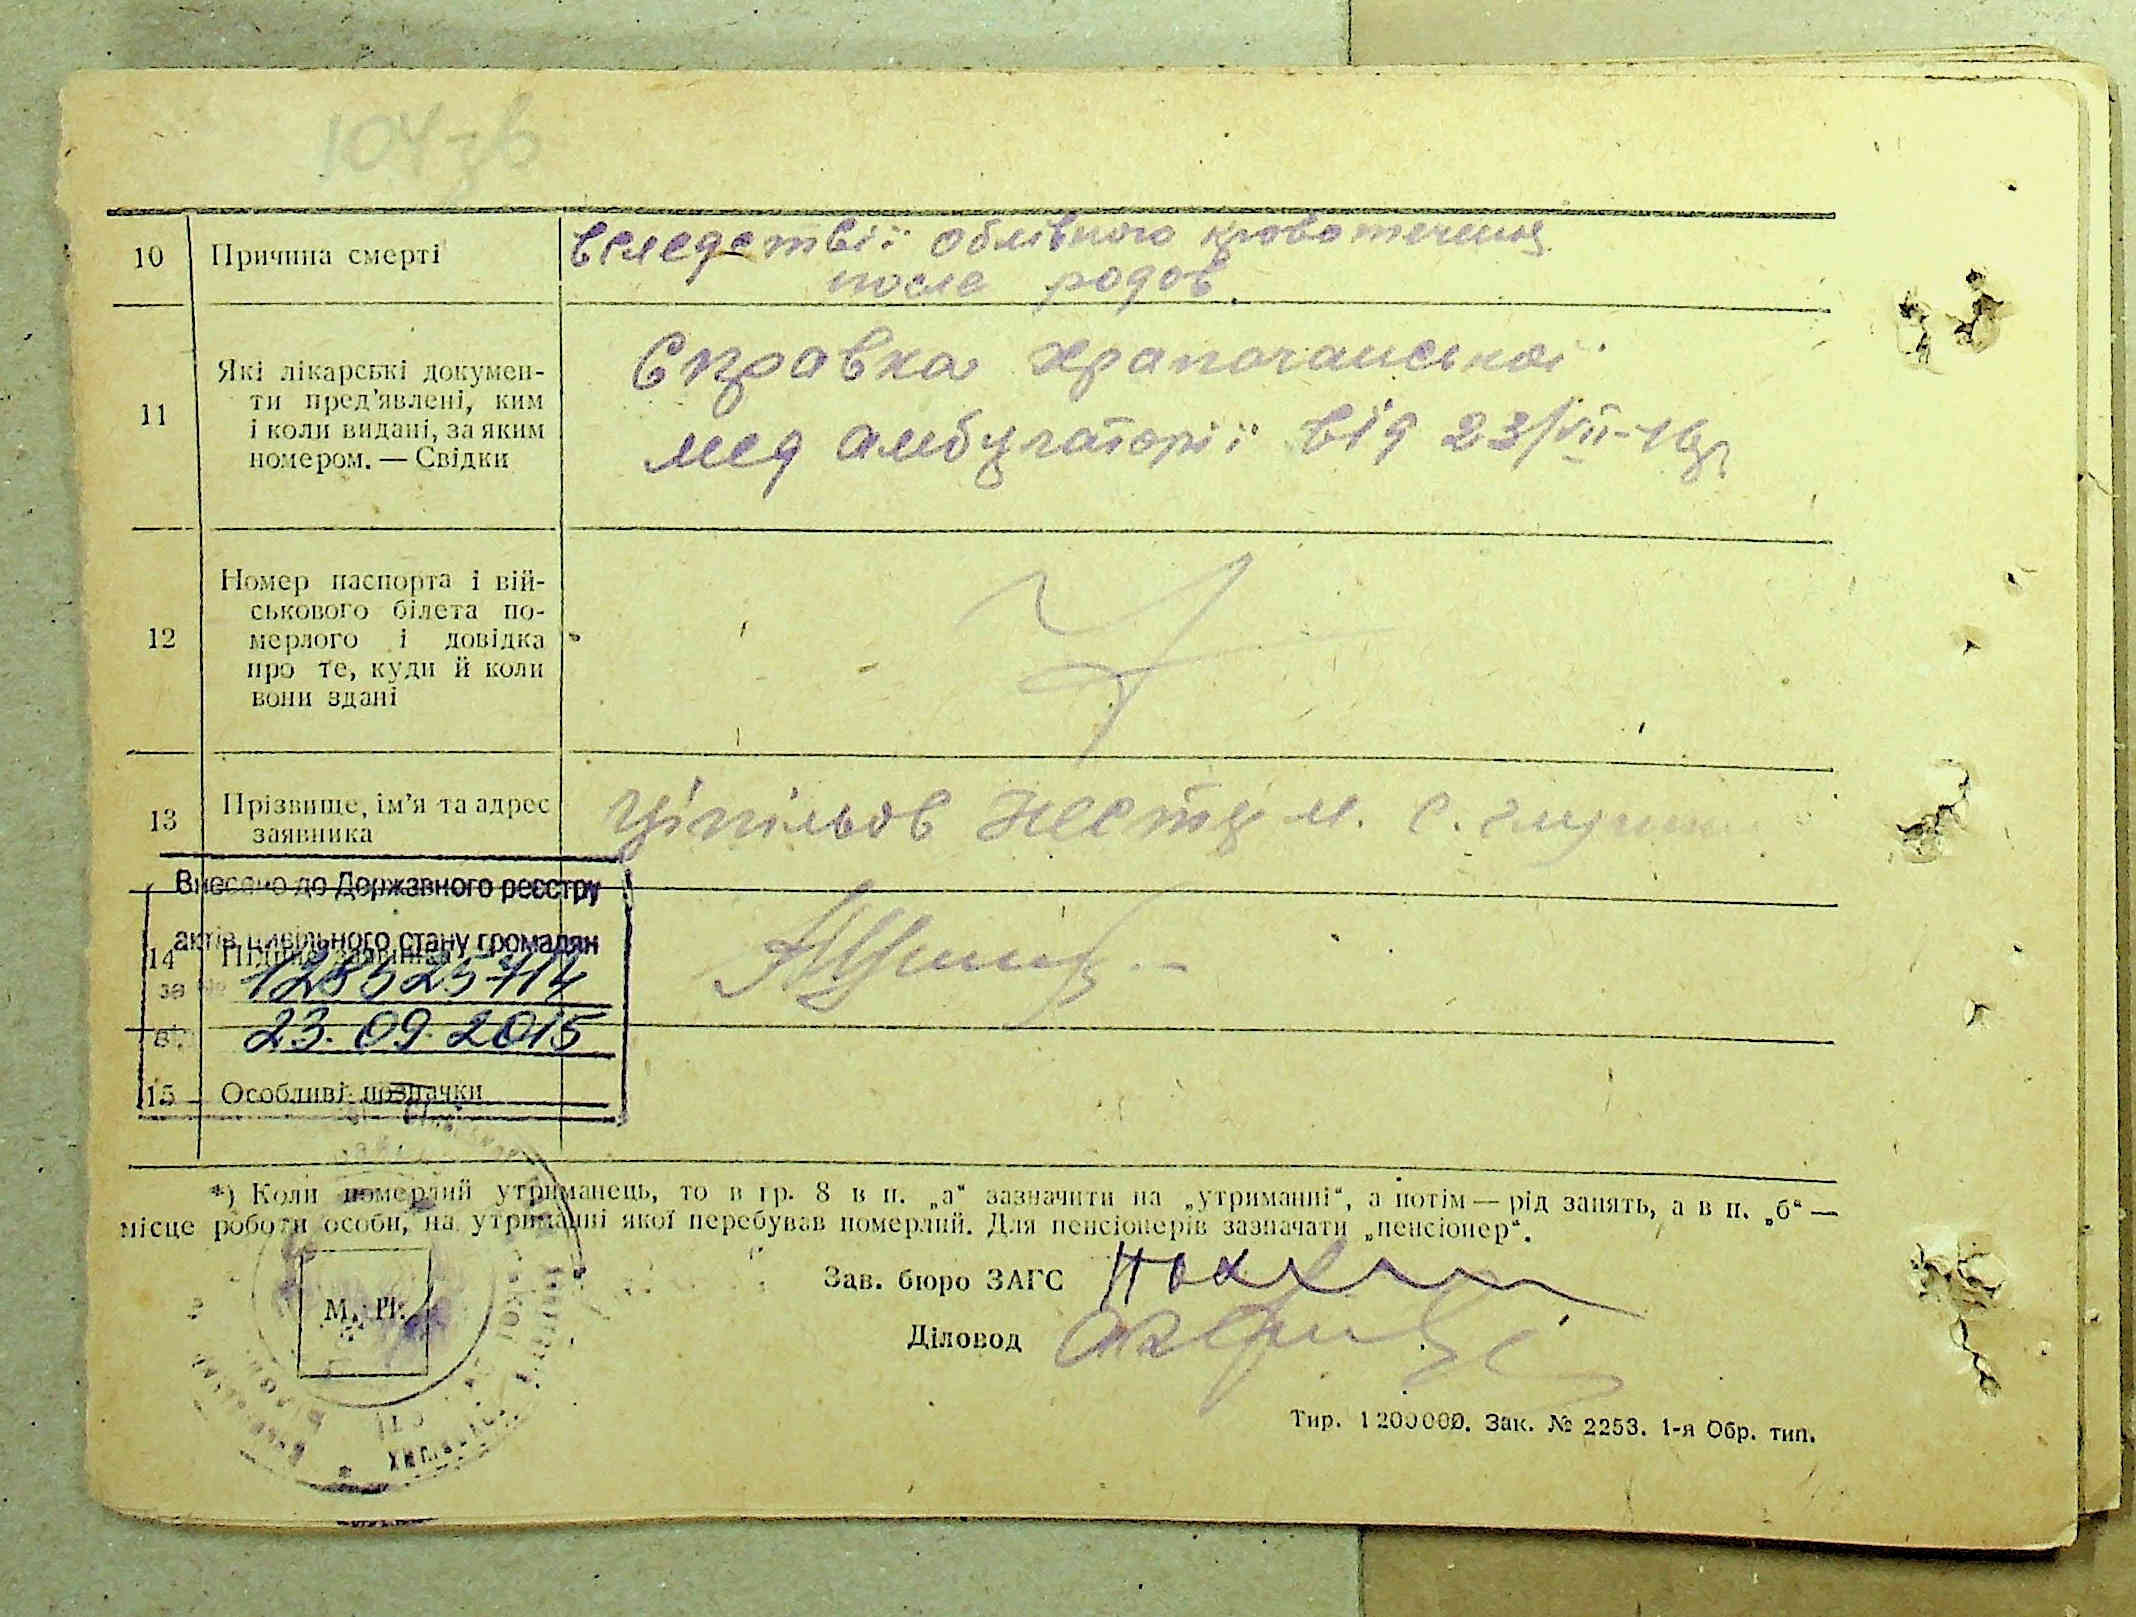 104зв
10 Причина смерті вследствії обливного кровотечения
после родов.
11 Які лікарські докумен-
ти пред'явлені, ким
і коли видані, за яким
номером. — Свідки
Справка
мед амбулаторії від 23/VII-
12 Номер паспорта і вій-
ськового білета по-
мерлого і довідка
про те, куди й коли
вони здані
13 Прізвище, ім'я та адрес
заявника
Ціпільов с.
Внесено до Державного реєстру
актів цивільного стану громадян
14 Підпис заявника
за №
від 23.09.2015
15 Особливі позначки
*) Коли померлий утриманець, то в гр. 8 в п. „а“ зазначити на „утриманні“, а потім — рід занять, а в п. „б“ —
місце роботи особи, на утриманні якої перебував померлий. Для пенсіонерів зазначати „пенсіонер“.
Зав. бюро ЗАГС
М. П.
Діловод
Тир. 1200000. Зак. № 2253. 1-я Обр. тип.